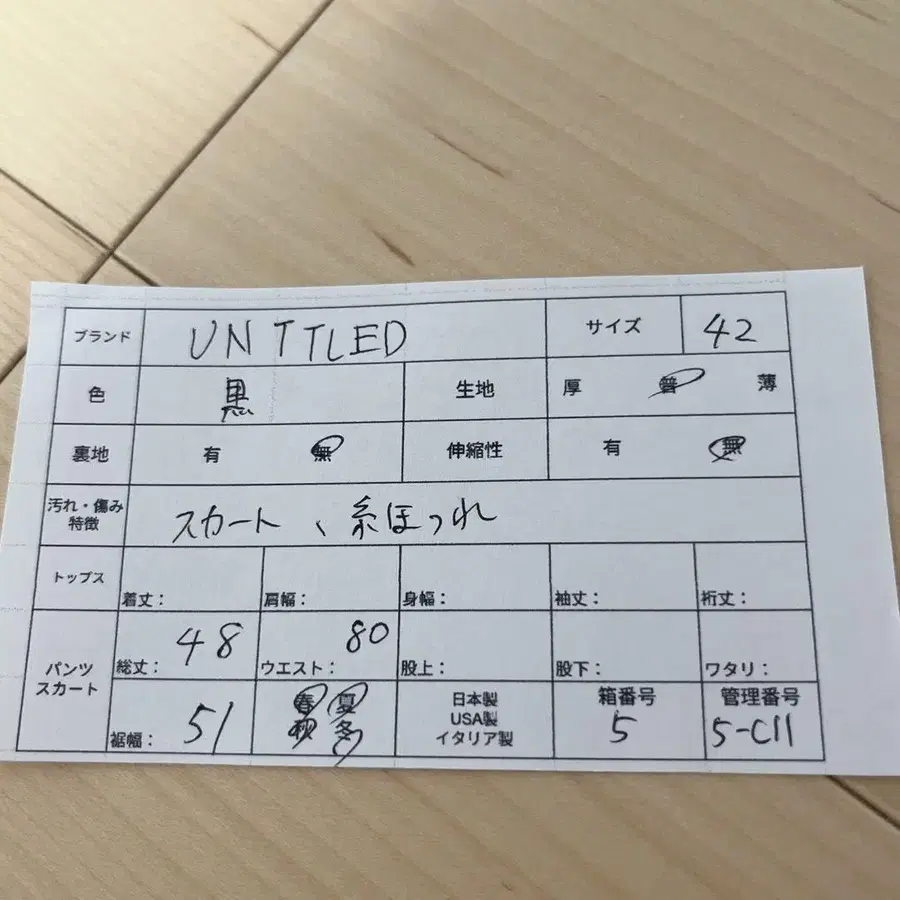 ブランド UNTTLED サイズ 42
色 黒 生地 厚 普 薄
裏地 有 無 伸縮性 有 無
汚れ・傷み
特徴 スカート、糸ほつれ
トップス 着丈: 肩幅: 身幅: 袖丈: 裄丈:
パンツ
スカート
総丈: 48 ウエスト: 80 股上: 股下: ワタリ:
裾幅: 51
春 夏
秋 冬
日本製
USA製
イタリア製
箱番号
5
管理番号
5-C11